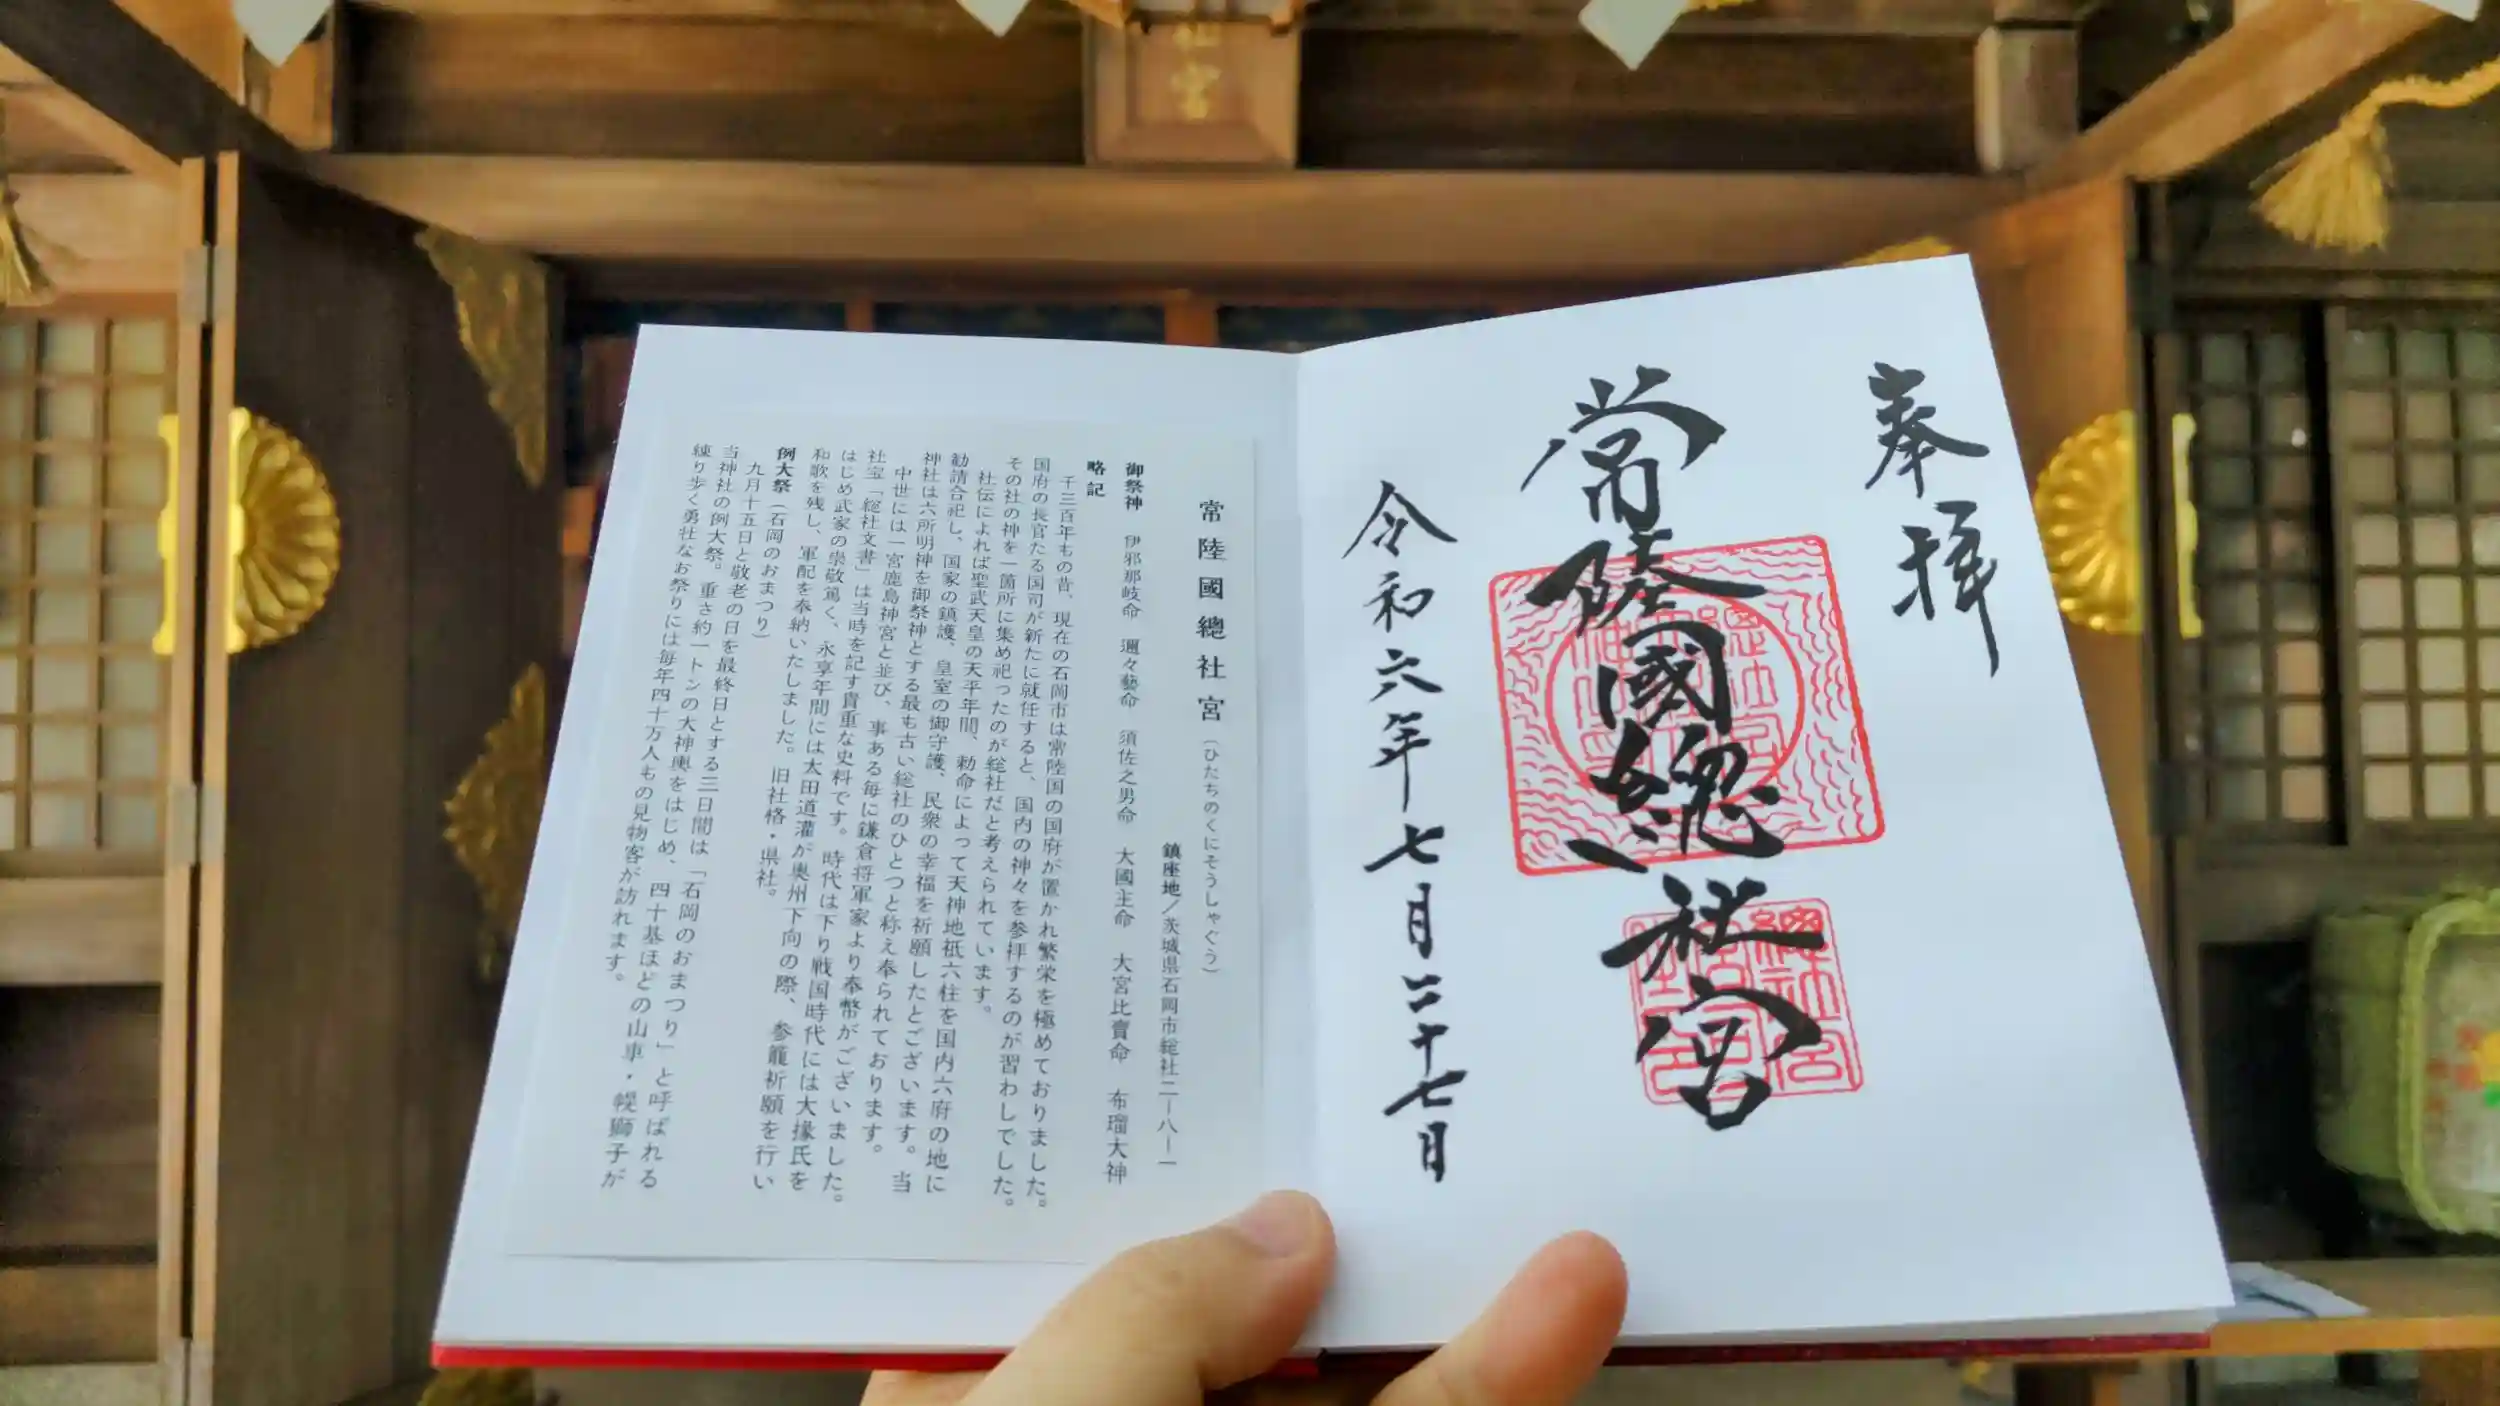 社宮
奉拝
常陸國總社宮
令和六年七月二十七日
常陸國總社宮（ひたちのくにそうしゃぐう）
鎮座地／茨城県石岡市総社二ー八ー一
御祭神　伊邪那岐命　邇々藝命　須佐之男命　大國主命　大宮比賣命　布瑠大神
略記
千三百年もの昔、現在の石岡市は常陸国の国府が置かれ繁栄を極めておりました。
国府の長官たる国司が新たに就任すると、国内の神々を参拝するのが習わしでした。
その社の神を一箇所に集め祀ったのが総社だと考えられています。
社伝によれば聖武天皇の天平年間、勅命によって天神地祇六柱を国内六府の地に
勧請合祀し、国家の鎮護、皇室の御守護、民衆の幸福を祈願したとございます。当
神社は六所明神を御祭神とする最も古い総社のひとつと称え奉られております。
中世には一宮鹿島神宮と並び、事ある毎に鎌倉将軍家より奉幣がございました。
社宝「総社文書」は当時を記す貴重な史料です。時代は下り戦国時代には大掾氏を
はじめ武家の崇敬篤く、永享年間には太田道灌が奥州下向の際、参籠祈願を行い
和歌を残し、軍配を奉納いたしました。旧社格・県社。
例大祭（石岡のおまつり）
九月十五日と敬老の日を最終日とする三日間は「石岡のおまつり」と呼ばれる
当神社の例大祭。重さ約一トンの大神輿をはじめ、四十基ほどの山車・幌獅子が
練り歩く勇壮なお祭りには毎年四十万人もの見物客が訪れます。